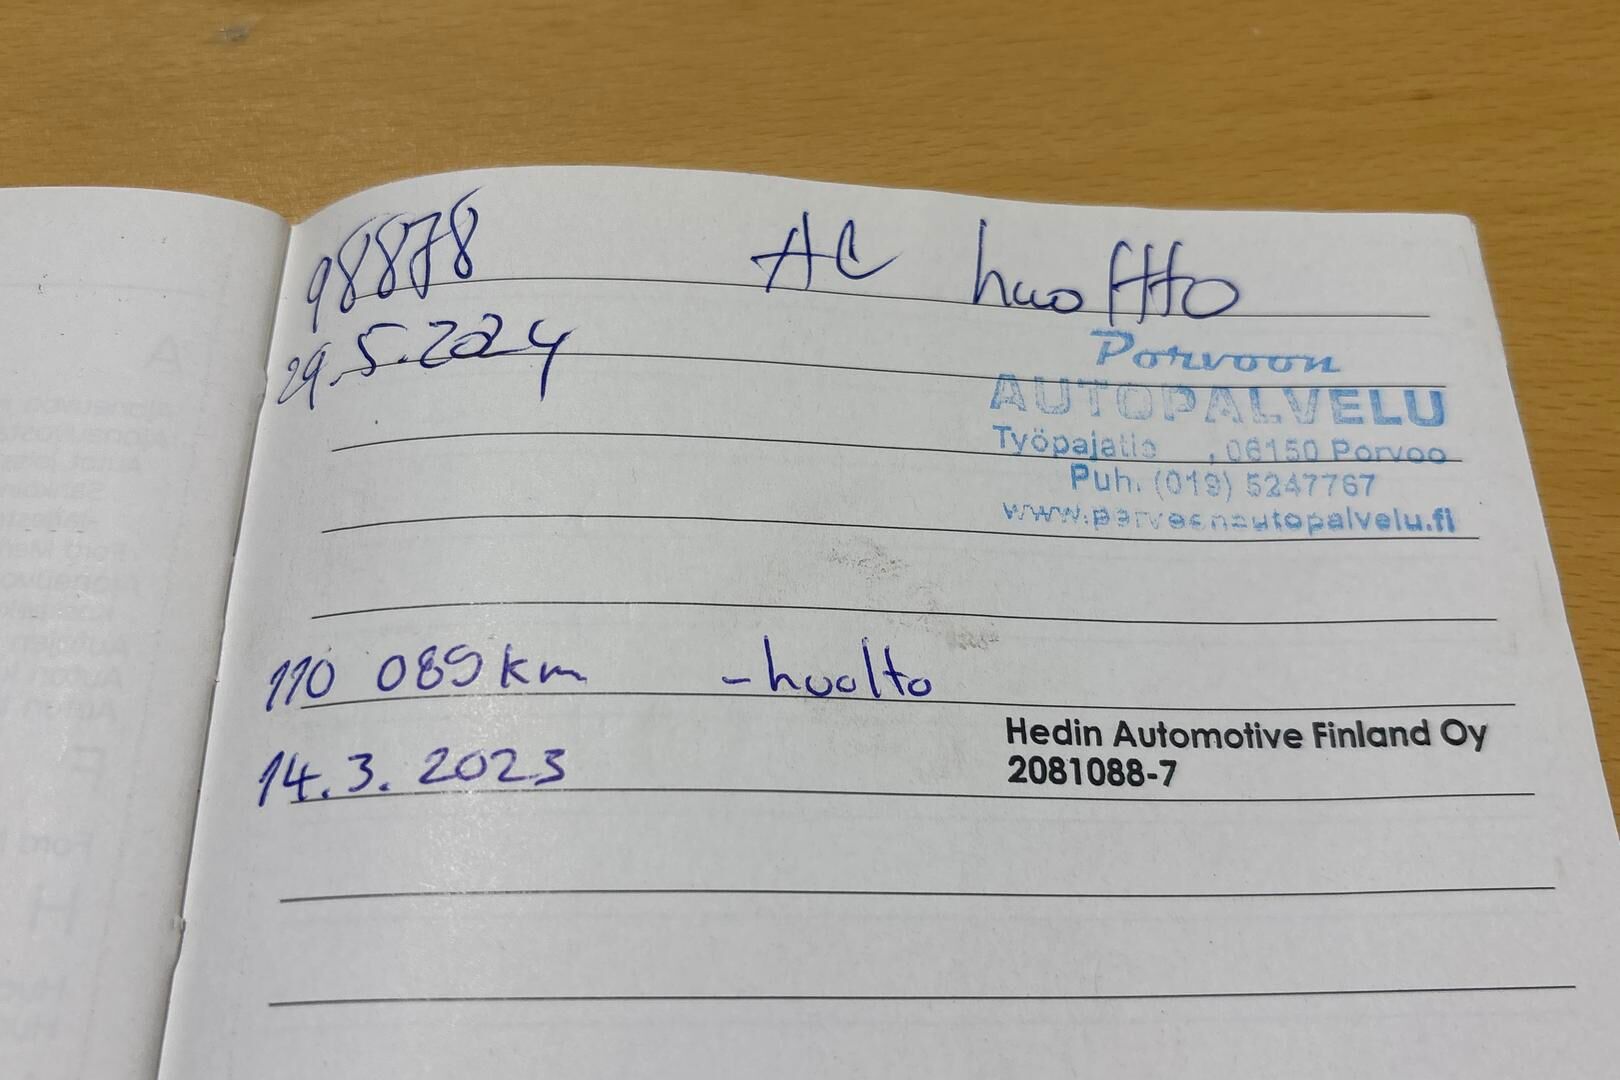 98878 AC huolto
29.5.2024
Porvoon
AUTOPALVELU
Työpajatie , 06150 Porvoo
Puh. (019) 5247767
www.porvoonautopalvelu.fi
110 089 km - huolto
Hedin Automotive Finland Oy
14.3.2023
2081088-7